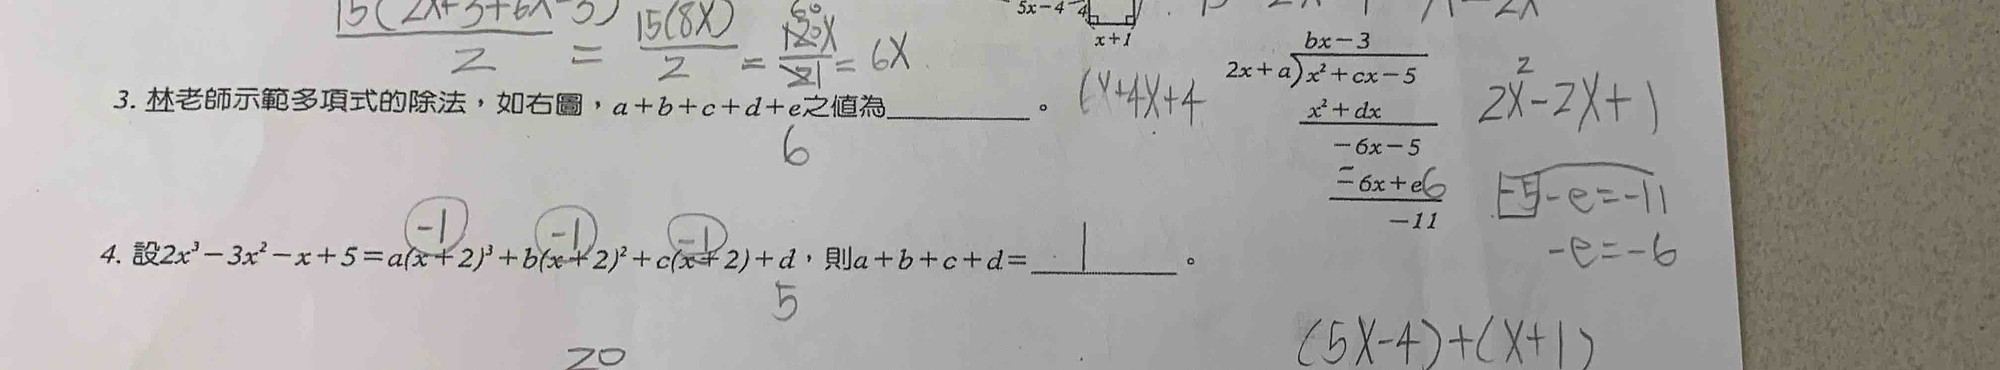 15(2x+3+6x-3)/2 = 15(8x)/2 = 120x/21 = 6x
60
5x-4 4
x+1
3. 林老師示範多項式的除法，如右圖，a+b+c+d+e之值為______。
6
6x+4x+4
bx-3
2x+a)x²+cx-5
x²+dx
-6x-5
-6x+e 6
-11
2x²-2x+1
-5-e=-11
-e=-6
-1 -1 -1
4. 設2x³-3x²-x+5=a(x+2)³+b(x+2)²+c(x+2)+d，則a+b+c+d=1。
5
20
(5x-4)+(x+1)